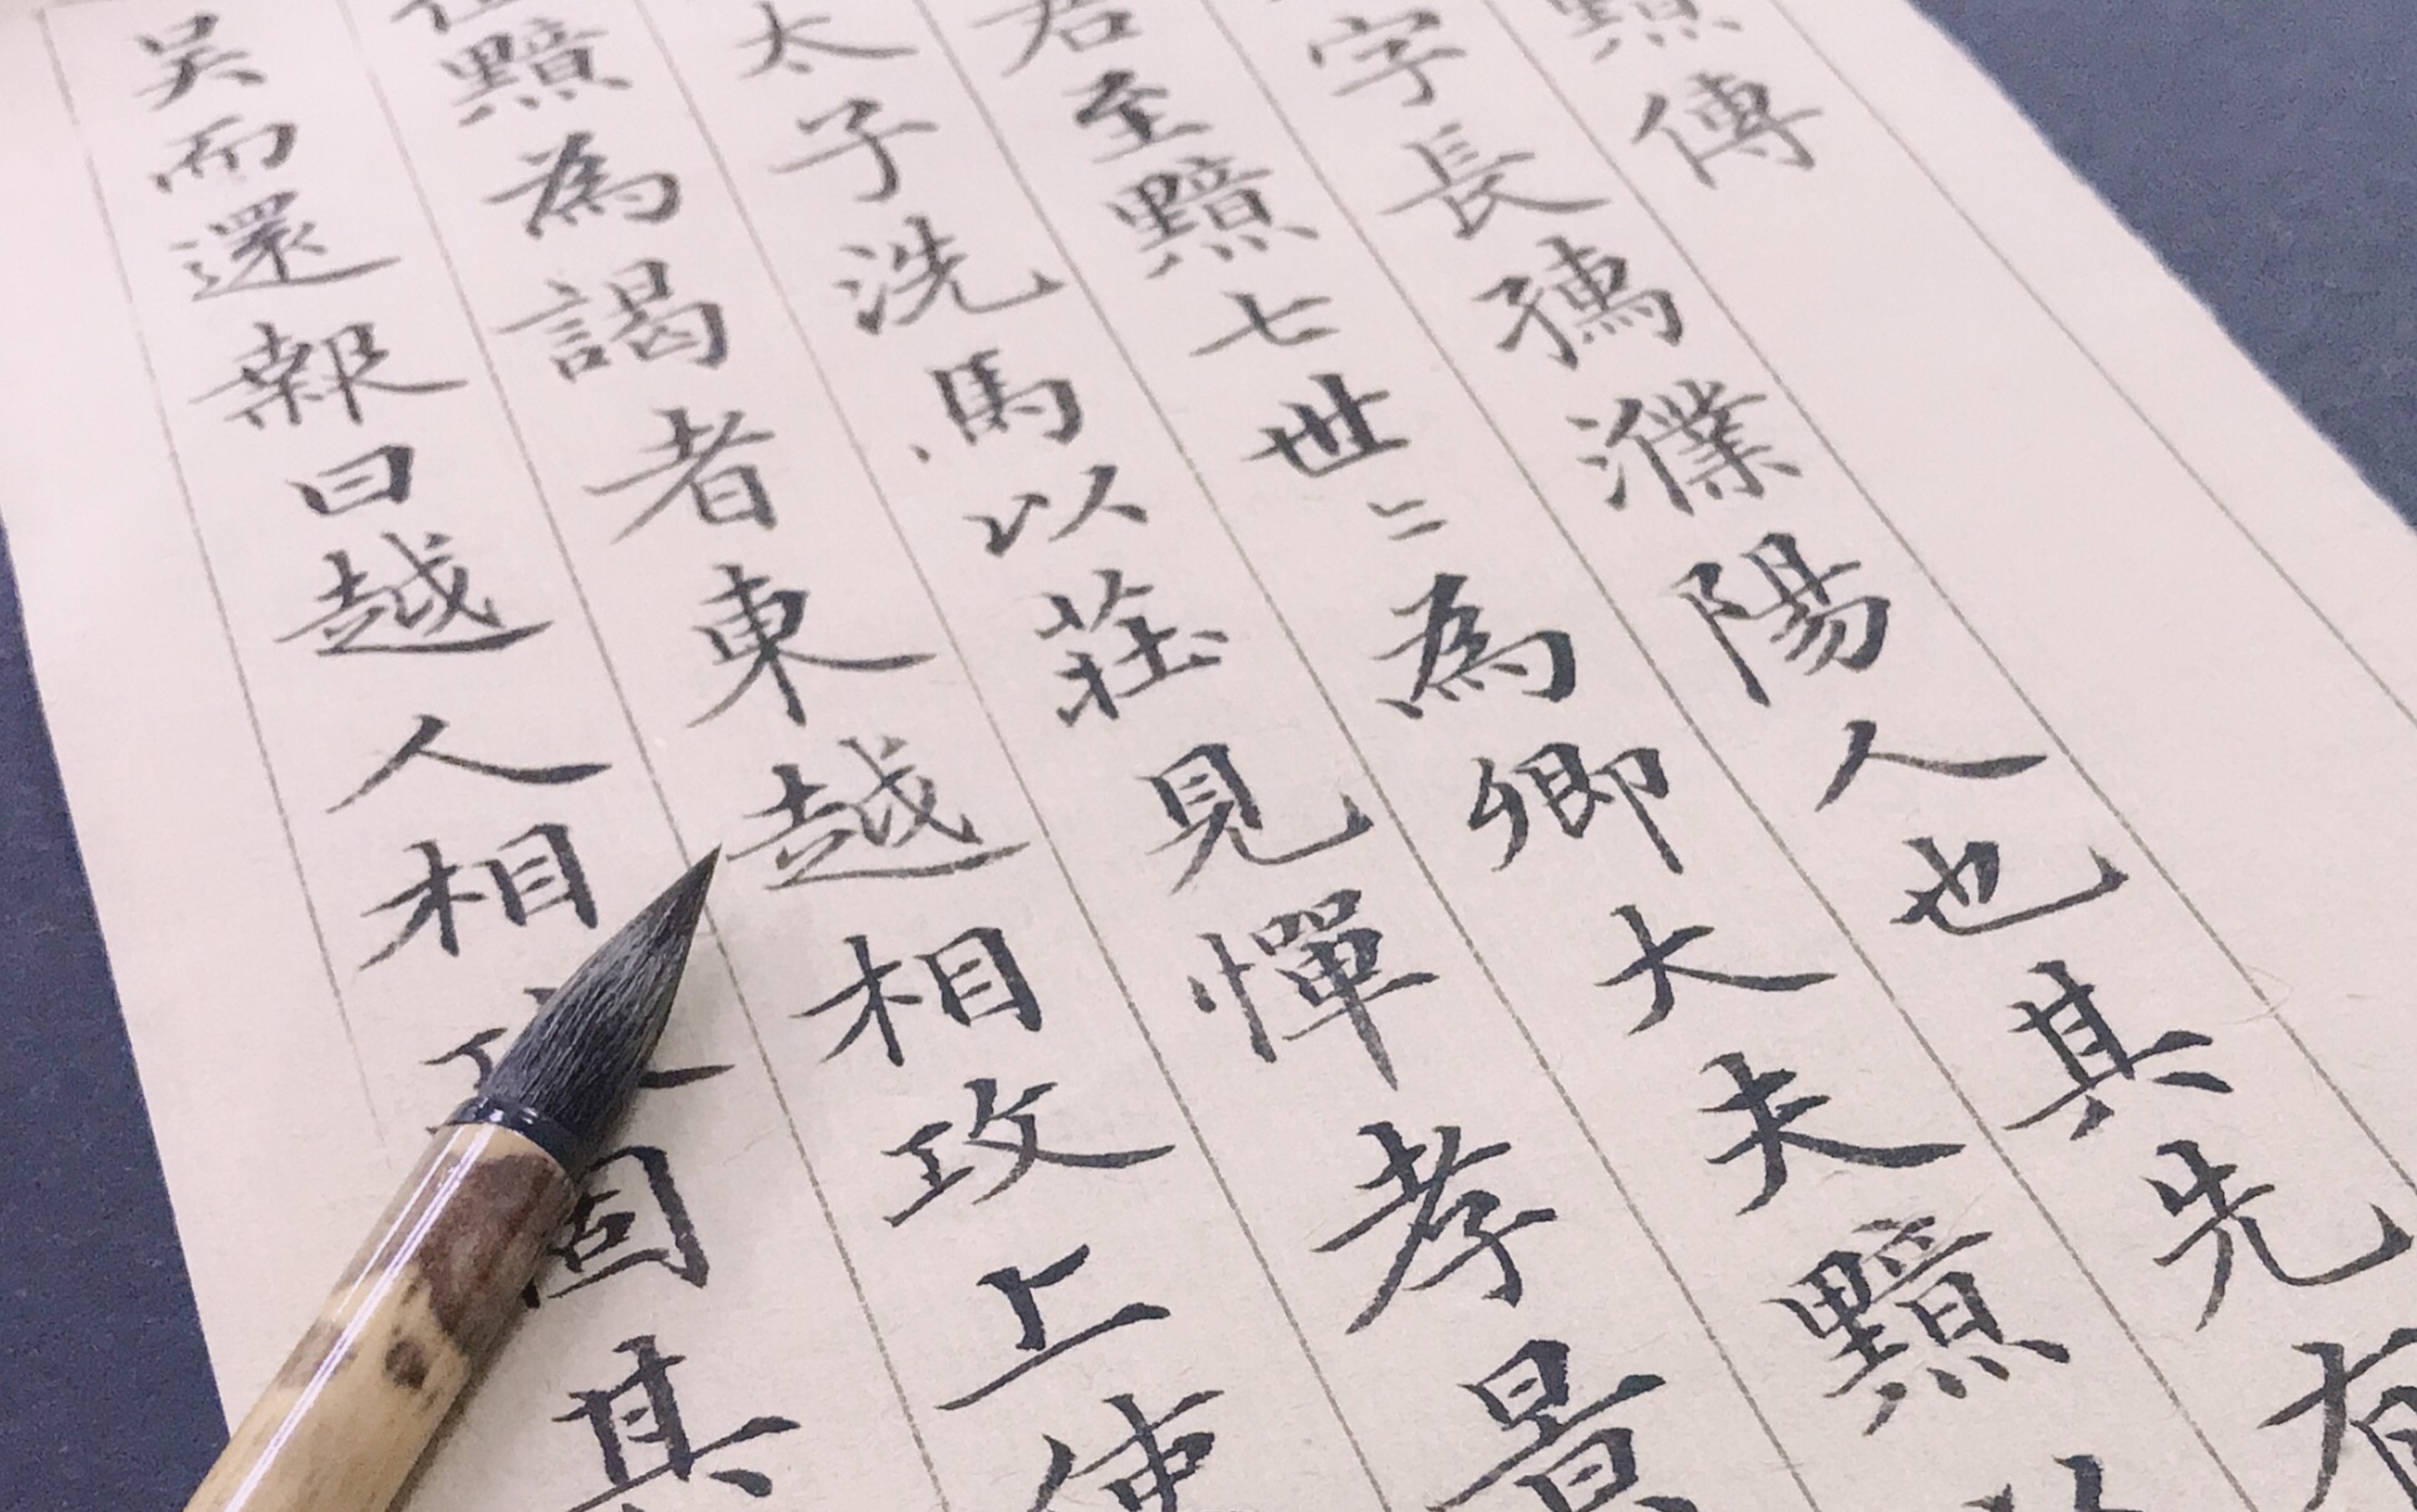 黯傳
字長孺濮陽人也其先有
君至黯七世〻為卿大夫黯
太子洗馬以莊見憚孝景
位黯為謁者東越相攻上使
吴而還報曰越人相攻固其